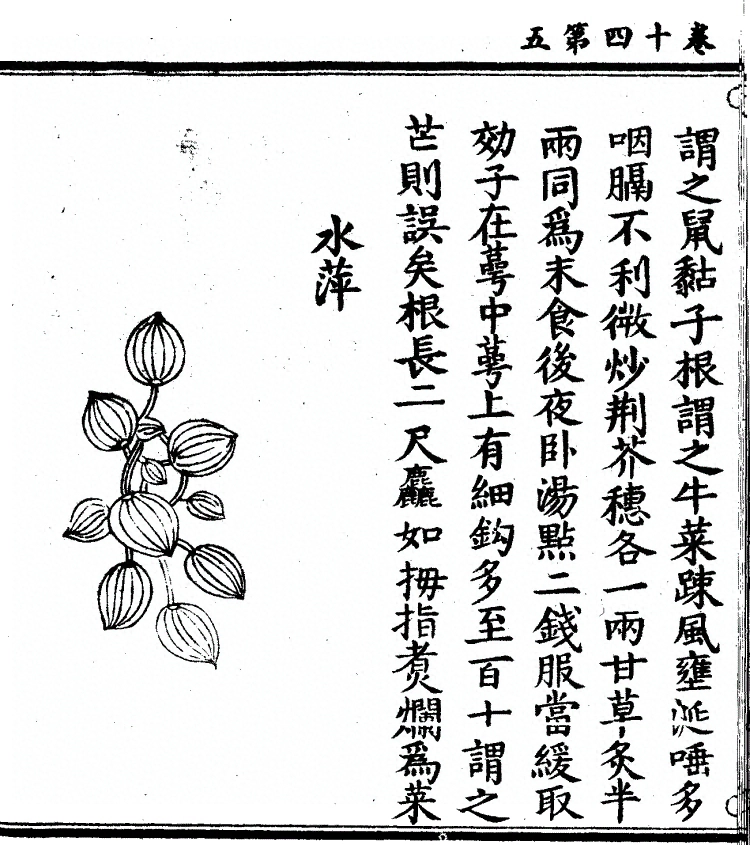 卷十四第五
謂之鼠黏子根謂之牛菜踈風壅涎唾多
咽膈不利微炒荆芥穗各一兩甘草炙半
兩同爲末食後夜卧湯點二錢服當緩取
効子在萼中萼上有細鈎多至百十謂之
芒則誤矣根長二尺麤如拇指煑爛爲菜
水萍